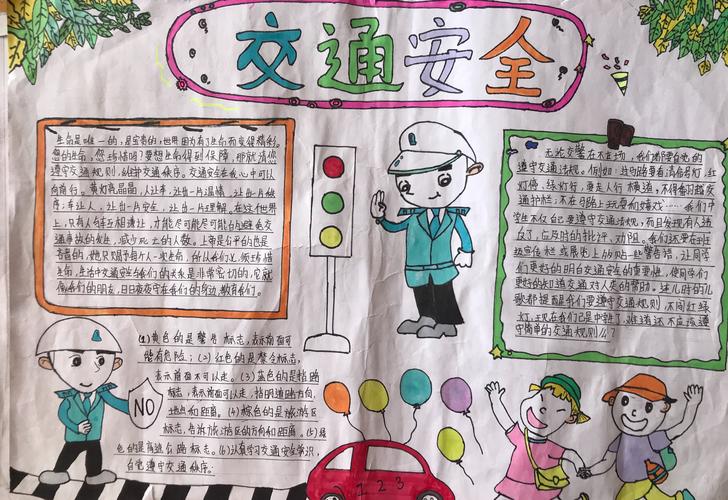 交通安全
生命是唯一的,是宝贵的;世界因为有了生命而变得精彩。
您的生命,您珍惜吗?要想生命得到保障,那就请您
遵守交通规则,维护交通秩序。交通安全在我心中可以
向前行。黄灯亮晶晶,人让车,让出一片温情,让出一片秩
序;车让人,让出一片安全,让出一片理解。在这个世界
上,只有人与车互相谦让,才能尽可能尽可能的避免交
通事故的发生,减少死亡的人数。上帝是公平的也是
吝啬的,她只赐予每个人一次生命,所以我们必须珍惜
生命,生活中交通安全与我们的关系是非常密切的,它就
像我们的朋友,日日夜夜守在我们的身边,教育我们。
无论交警在不在场,我们都要自觉的
遵守交通法规。例如:过马路要看清信号灯,红
灯停,绿灯行,要走人行横道,不得翻越交
通护栏;不在马路上玩耍和嬉戏……我们中
学生不仅自己要遵守交通法规,而且发现有人违
规了,应及时的批评、劝阻。我们还要在班
级宣传栏或展板上张贴一些警告语,让同学
们更好的明白交通安全的重要性,使同学们
更好的知道交通对人类的帮助。连儿时的儿
歌都提醒我们要遵守交通规则,不闯红绿
灯,现在我们已是中学生了,难道还不应该遵
守简单的交通规则么?
(1)黄色的是警告标志,表示前面可
能有危险;(2)红色的是禁令标志,
表示前面不可以走。(3)蓝色的是指路
标志,表示前面可以走,指明道路方向、
地点和距离。(4)棕色的是旅游区
标志,告诉旅游区的方向和距离。(5)绿
色的是高速公路标志。(6)认真学习交通安全常识,
自觉遵守交通秩序。
NO
1 2 3